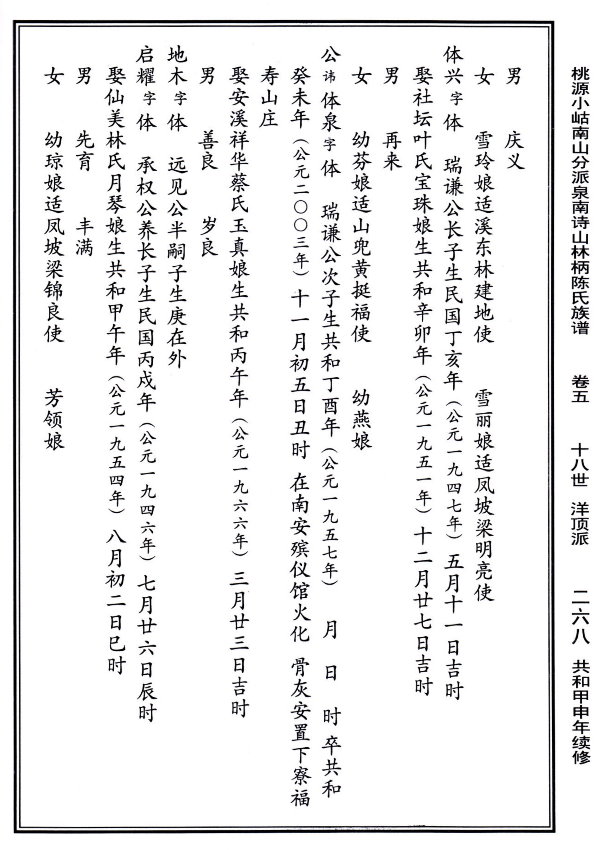 桃源小岵南山分派泉南诗山林柄陈氏族谱 卷五 十八世 洋顶派 二六八 共和甲申年续修
男 庆义
女 雪玲娘适溪东林建地使 雪丽娘适凤坡梁明亮使
体兴字体 瑞谦公长子生民国丁亥年（公元一九四七年）五月十一日吉时
娶社坛叶氏宝珠娘生共和辛卯年（公元一九五一年）十二月廿七日吉时
男 再来
女 幼芬娘适山兜黄挺福使 幼燕娘
公讳体泉字体 瑞谦公次子生共和丁酉年（公元一九五七年） 月 日 时卒共和
癸未年（公元二〇〇三年）十一月初五日丑时 在南安殡仪馆火化 骨灰安置下寮福
寿山庄
娶安溪祥华蔡氏玉真娘生共和丙午年（公元一九六六年）三月廿三日吉时
男 善良 岁良
地木字体 远见公半嗣子生庚在外
启耀字体 承权公养长子生民国丙戌年（公元一九四六年）七月廿六日辰时
娶仙美林氏月琴娘生共和甲午年（公元一九五四年）八月初二日巳时
男 先育 丰满
女 幼琼娘适凤坡梁锦良使 芳领娘